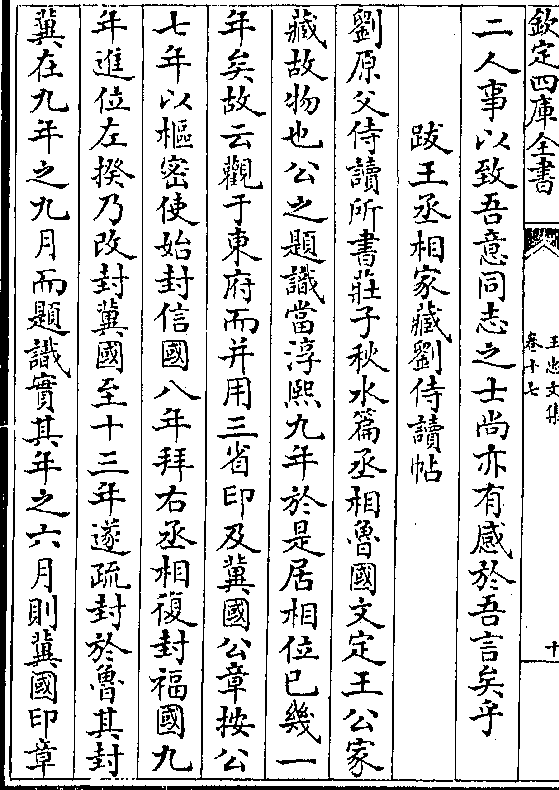 欽定四庫全書
王忠文集
卷十七
十
二人事以致吾意同志之士尚亦有感於吾言矣乎
跋王丞相家藏劉侍讀帖
劉原父侍讀所書莊子秋水篇丞相魯國文定王公家
藏故物也公之題識當淳熙九年於是居相位已幾一
年矣故云觀于東府而并用三省印及冀國公章按公
七年以樞密使始封信國八年拜右丞相復封福國九
年進位左揆乃改封冀國至十三年遂疏封於魯其封
冀在九年之九月而題識實其年之六月則冀國印章